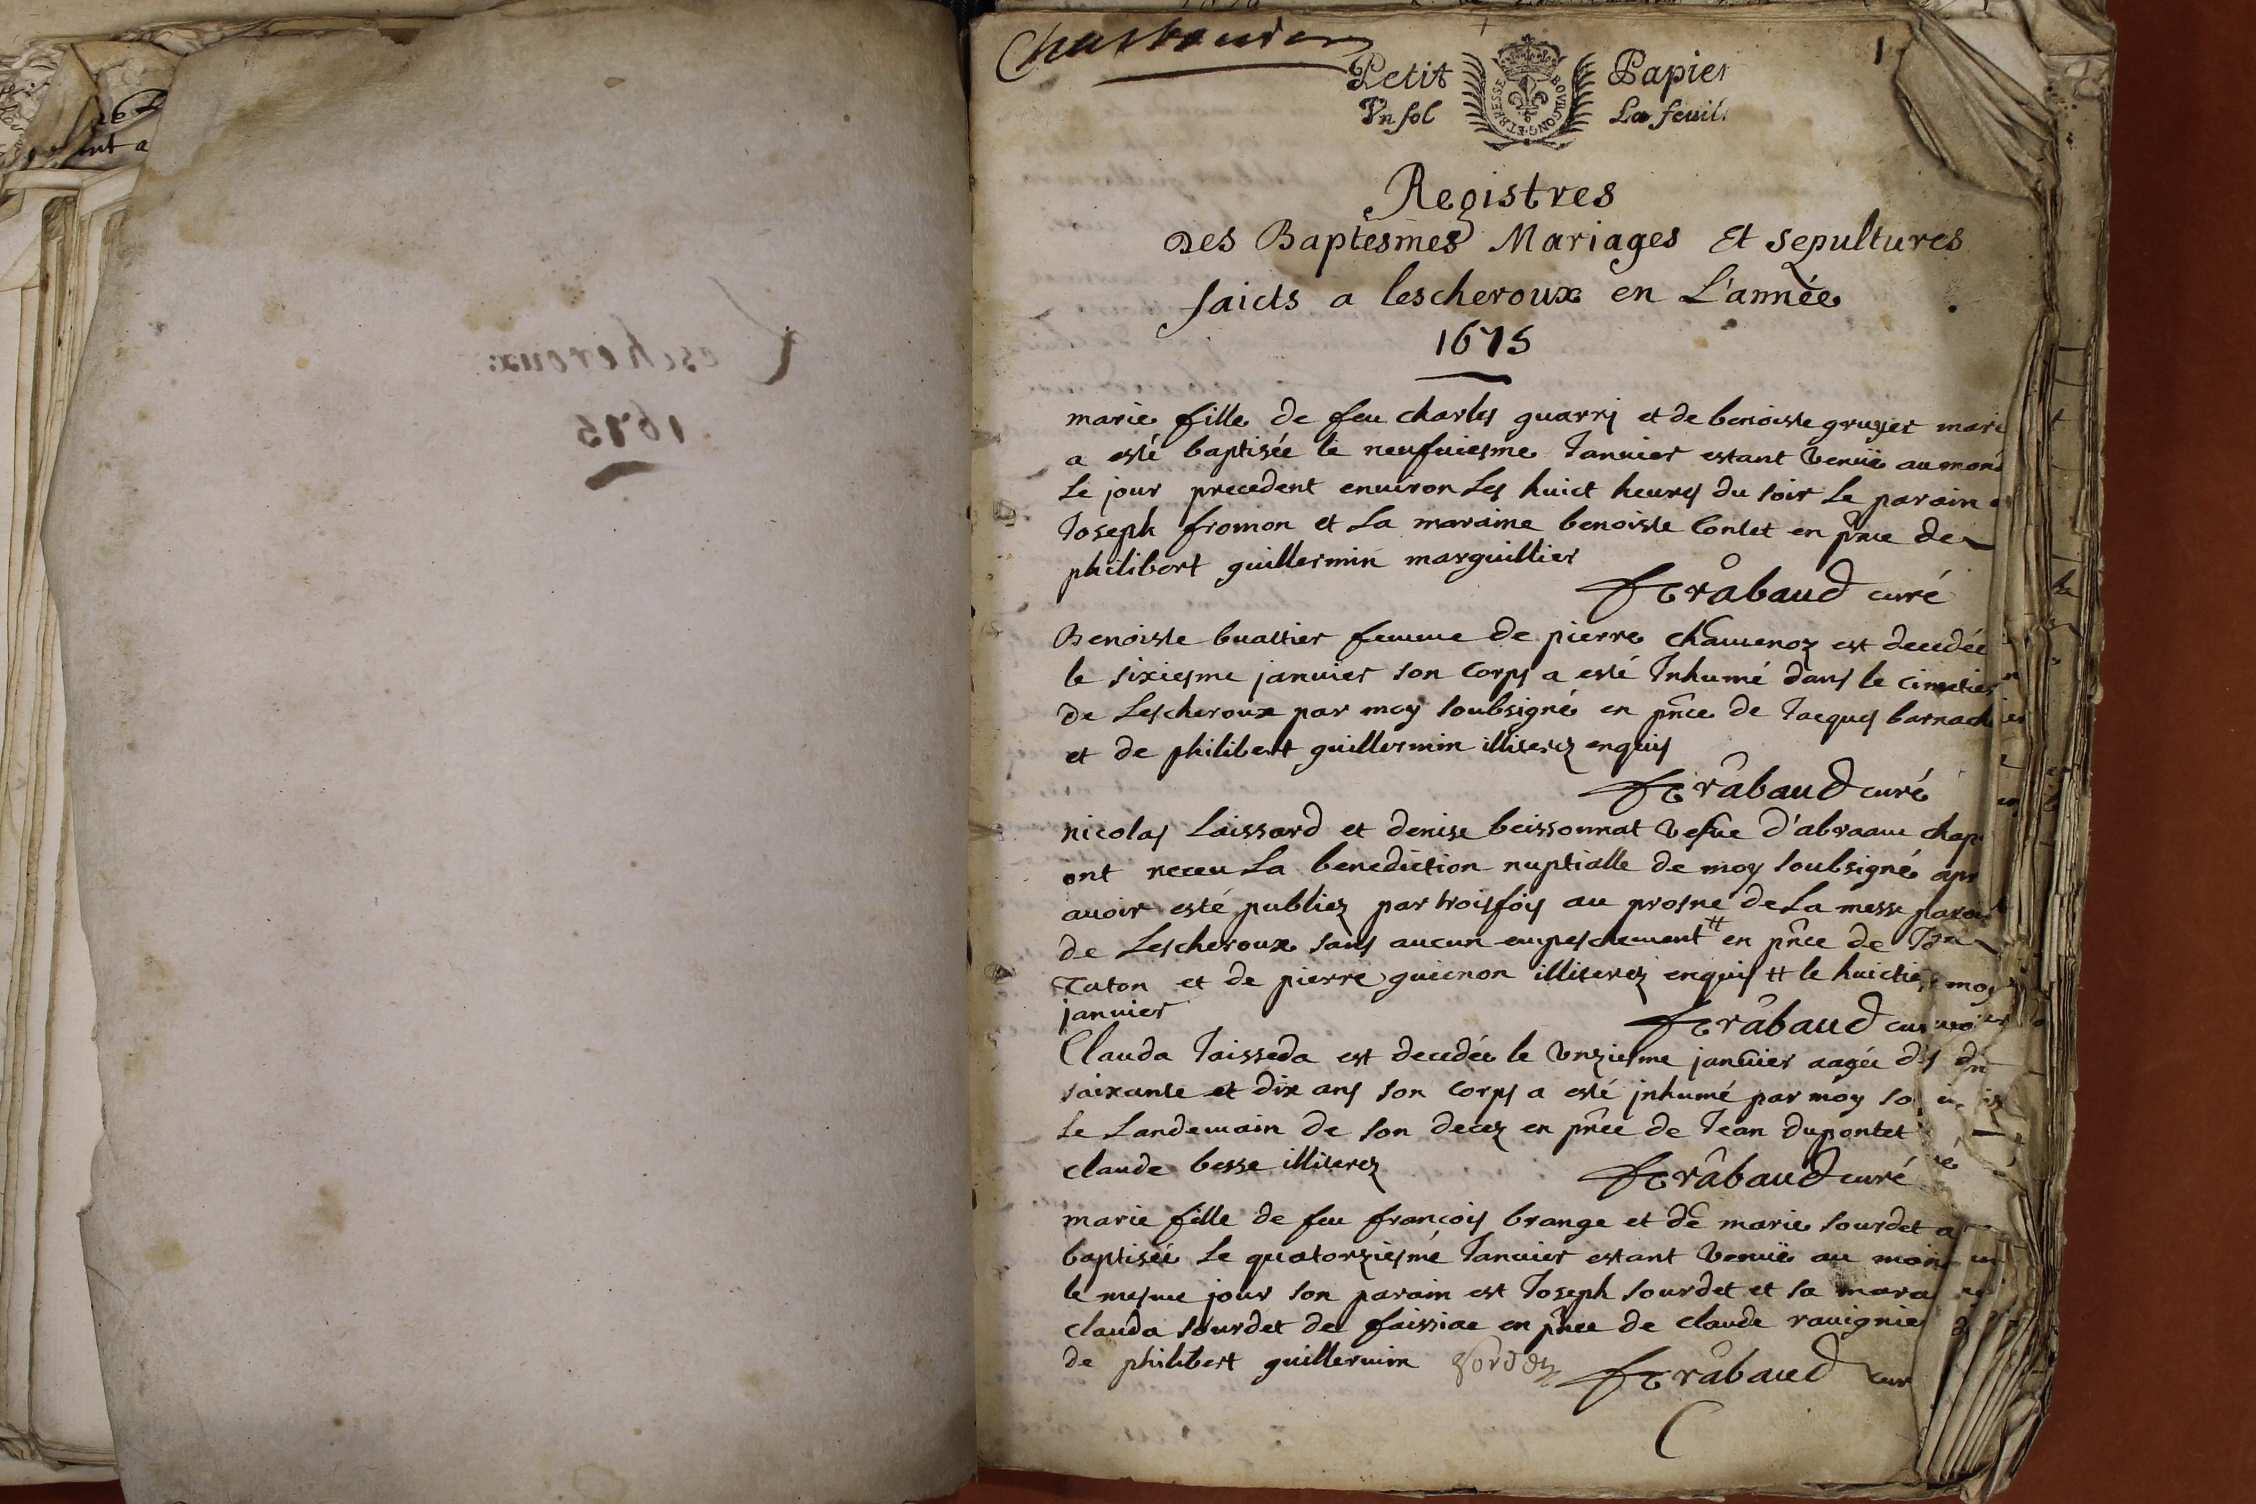 Lescheroux:
1675
1
Petit Papier
Vn sol La feuil
BOVRGONG ET BRESSE
Registres
Des Baptesmes Mariages Et sepultures
faicts a lescheroux en L'année
1675
marie fille de feu charles guarri et de benoiste gruyer mari
a esté baptisée le neufuiesme Januier estant venüe au mond
le jour precedent enuiron les huict heures du soir le parain
Joseph fromon et la maraine benoiste Contet en pnce de
philibert guillermin marguillier
rabaud curé
Benoiste buattier femme de pierre chauuenoz est decedée
le sixiesme januier son corps a esté Inhumé dans le cimetier
de Lescheroux par moy soubsigné en pnce de Jacques barnach
et de philibert guillermin illiterez enquis
rabaud curé
nicolas Laissard et denise beissonnat vefue d'abraam chap
ont receu la benediction nuptialle de moy soubsigné apr
auoir esté publiez par trois fois au prosne de La messe paroi
de Lescheroux sans aucun empeschement # en pnce de
Taton et de pierre guienon illiterez enquis # le huictie
januier
rabaud cu
Clauda Taisseda est decedée le vnziesme januier aagée d
soixante et dix ans son corps a esté jnhumé par moy so
le Landemain de son decez en pnce de Jean dupontet
claude besse illiterez
rabaud curé
marie fille de feu françois brange et de marie sourdet a
baptisée le quatorziesme Januier estant venüe au mon
le mesme jour son parain est Joseph sourdet et sa mara
clauda sourdet de faissiae en pnce de claude rauignie
de philibert guillermin
rabaud cur